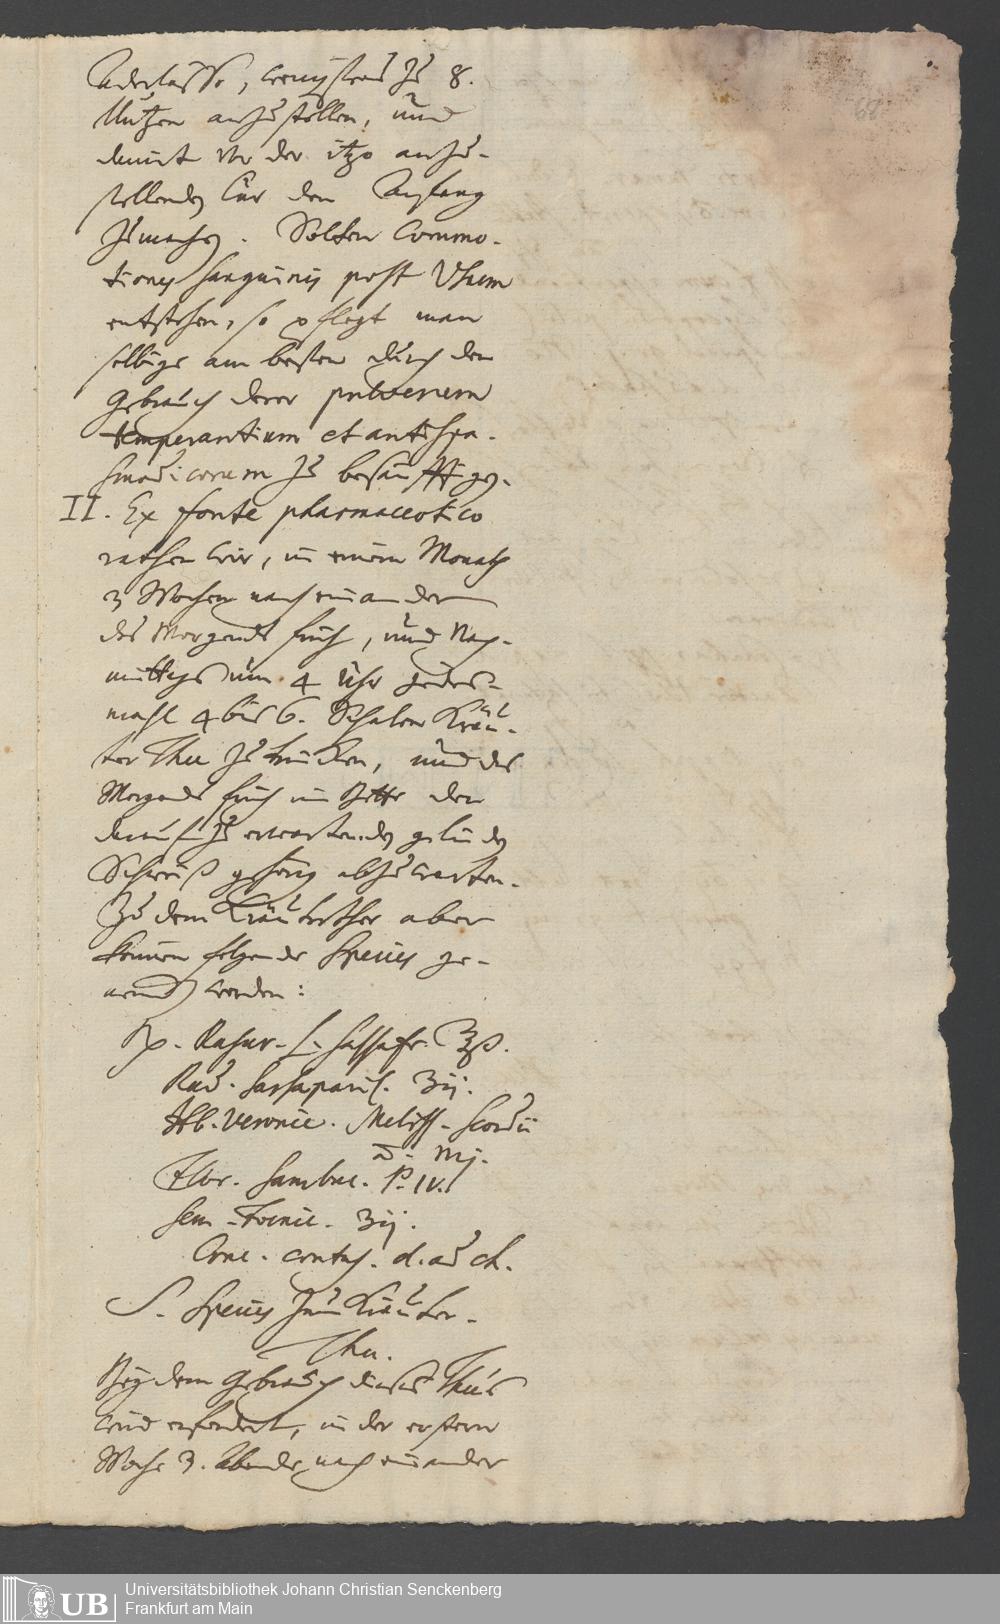 Aderlässe, wenigstens zu 8.
Untzen anzustellen, und
damit vor der itzo anzu-
stellenden Cur den Anfang
zumachen. Solten Commo-
tiones sanguinis post Usum
entstehen, so pflegt man
selbige am besten durch den
Gebrauch derer pulverum
temperantium et antispa-
smodicorum zu besänfftigen.
II. Ex fonte pharmaceutico
rathen wir, in einem Monath
3 Wochen nach einander
des Morgends früh, und Nach-
mittags um 4 Uhr jedes-
mahl 4 bis 6. Schalen Kräu-
ter Thee zu trincken, und des
Morgends früh im Bette den
darauf zu erwartenden gelinden
Schweiß gehörig abzuwarten.
Zu dem Kräuterthee aber
können folgende Species ge-
nommen werden:
Rp. Rasur. L. Sassafr. ℥ß.
Rad. Sassaparil. ʒij.
Hb. Veronic. Meliss. Scordii
a. Mj.
Flor. Sambuc. P. IV.
Sem. Foenic. ʒij.
Conc. contus. d. ad ch.
S. Species zum Kräuter-
Thee.
Bey dem Gebrauch dieses Thee's
wird erfordert, in der erstern
Woche 3. Abende nach einander
68
UB
Universitätsbibliothek Johann Christian Senckenberg
Frankfurt am Main